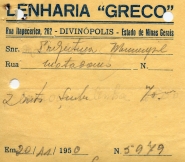 LENHARIA "GRECO"
Rua Itapecerica, 262 - DIVINÓPOLIS - Estado de Minas Gerais
Snr. Prefeitura Municipal
Rua N.
2 70-
Em, 20/ / 1950 N 5979